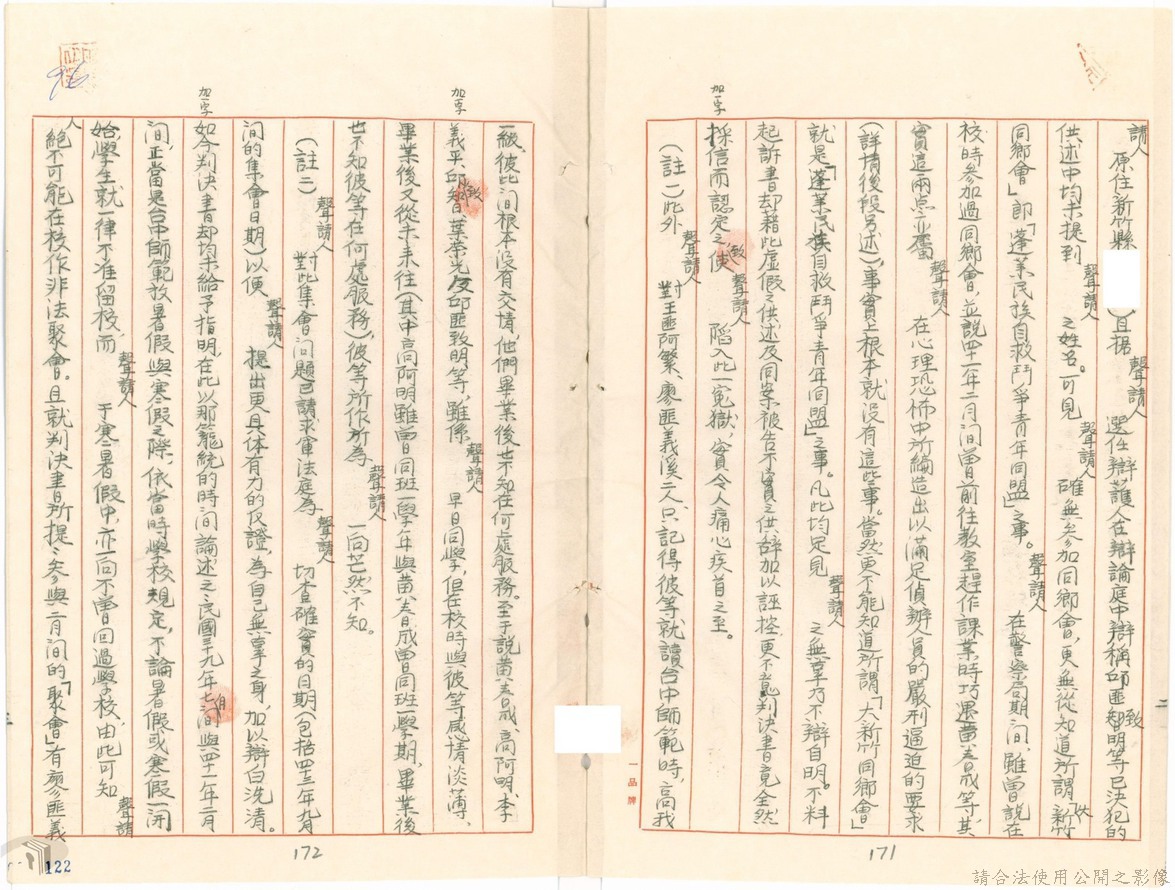 請人原住新竹縣 )且据聲請人選任辯護人在辯論庭中辯稱邱匪致明等已決犯的
供述中均未提到聲請人之姓名。可見聲請人確無參加同鄉會,更無從知道所謂「新竹
同鄉會」即「蓬萊民族自救鬥爭青年同盟」之事。聲請人在警察局期间,雖曾說在
校時參加過同鄉會,並說四十一年二月间曾前往教室趕作課業時巧遇黃春成等,其
實這兩点亦屬聲請人在心理恐怖中所編造出以滿足偵辦人員的嚴刑逼迫的要求
(詳情後段另述),事實上根本就没有這些事。當然更不能知道所謂「大新竹同鄉會」
就是「蓬萊民族自救鬥爭青年同盟」之事。凡此均足見聲請人之無辜乃不辯自明。不料
起訴書却藉此虛假之供述及同案被告不實之供辞加以誣控,更不意判決書竟全然
採信而認定之,致使聲請人陷入此一冤獄,實令人痛心疾首之至。
加一字
(註一)此外聲請人對王匪阿繁、廖匪義溪二人只記得彼等就讀台中師範時,高我
171
一級,彼此间根本沒有交情,他們畢業後也不知在何處服務。至于說黃春成、高阿明、李
義平、邱致智、葉榮光及邱匪致明等,雖係聲請人早日同學,但在校時與彼等感情淡薄、
加一字
畢業後又從未来往(其中高阿明雖曾同班一學年與黃春成曾同班一學期,畢業後
也不知彼等在何處服務)彼等所作所為聲請人一向茫然不知。
(註二)聲請人對此集會问題已請求軍法庭為聲請人切查確實的日期(包括四十三年九月
间的集會日期)以便聲請人提出更具体有力的反證,為自己無辜之身,加以辯白洗清。
如今判決書却均未給予指明,在此以那籠統的時间論述之民國三十九年七月间與四十一年二月
加一字
间,正當是台中師範放暑假與寒假之際,依當時學校規定,不論暑假或寒假一開
始,學生就一律不准留校,而聲請人于寒暑假中,亦一向不曾回過學校,由此可知聲請
人絕不可能在校作非法聚會。且就判決書所提之參與二月间的「聚會」有廖匪義
172
122
一品牌
請合法使用公開之影像